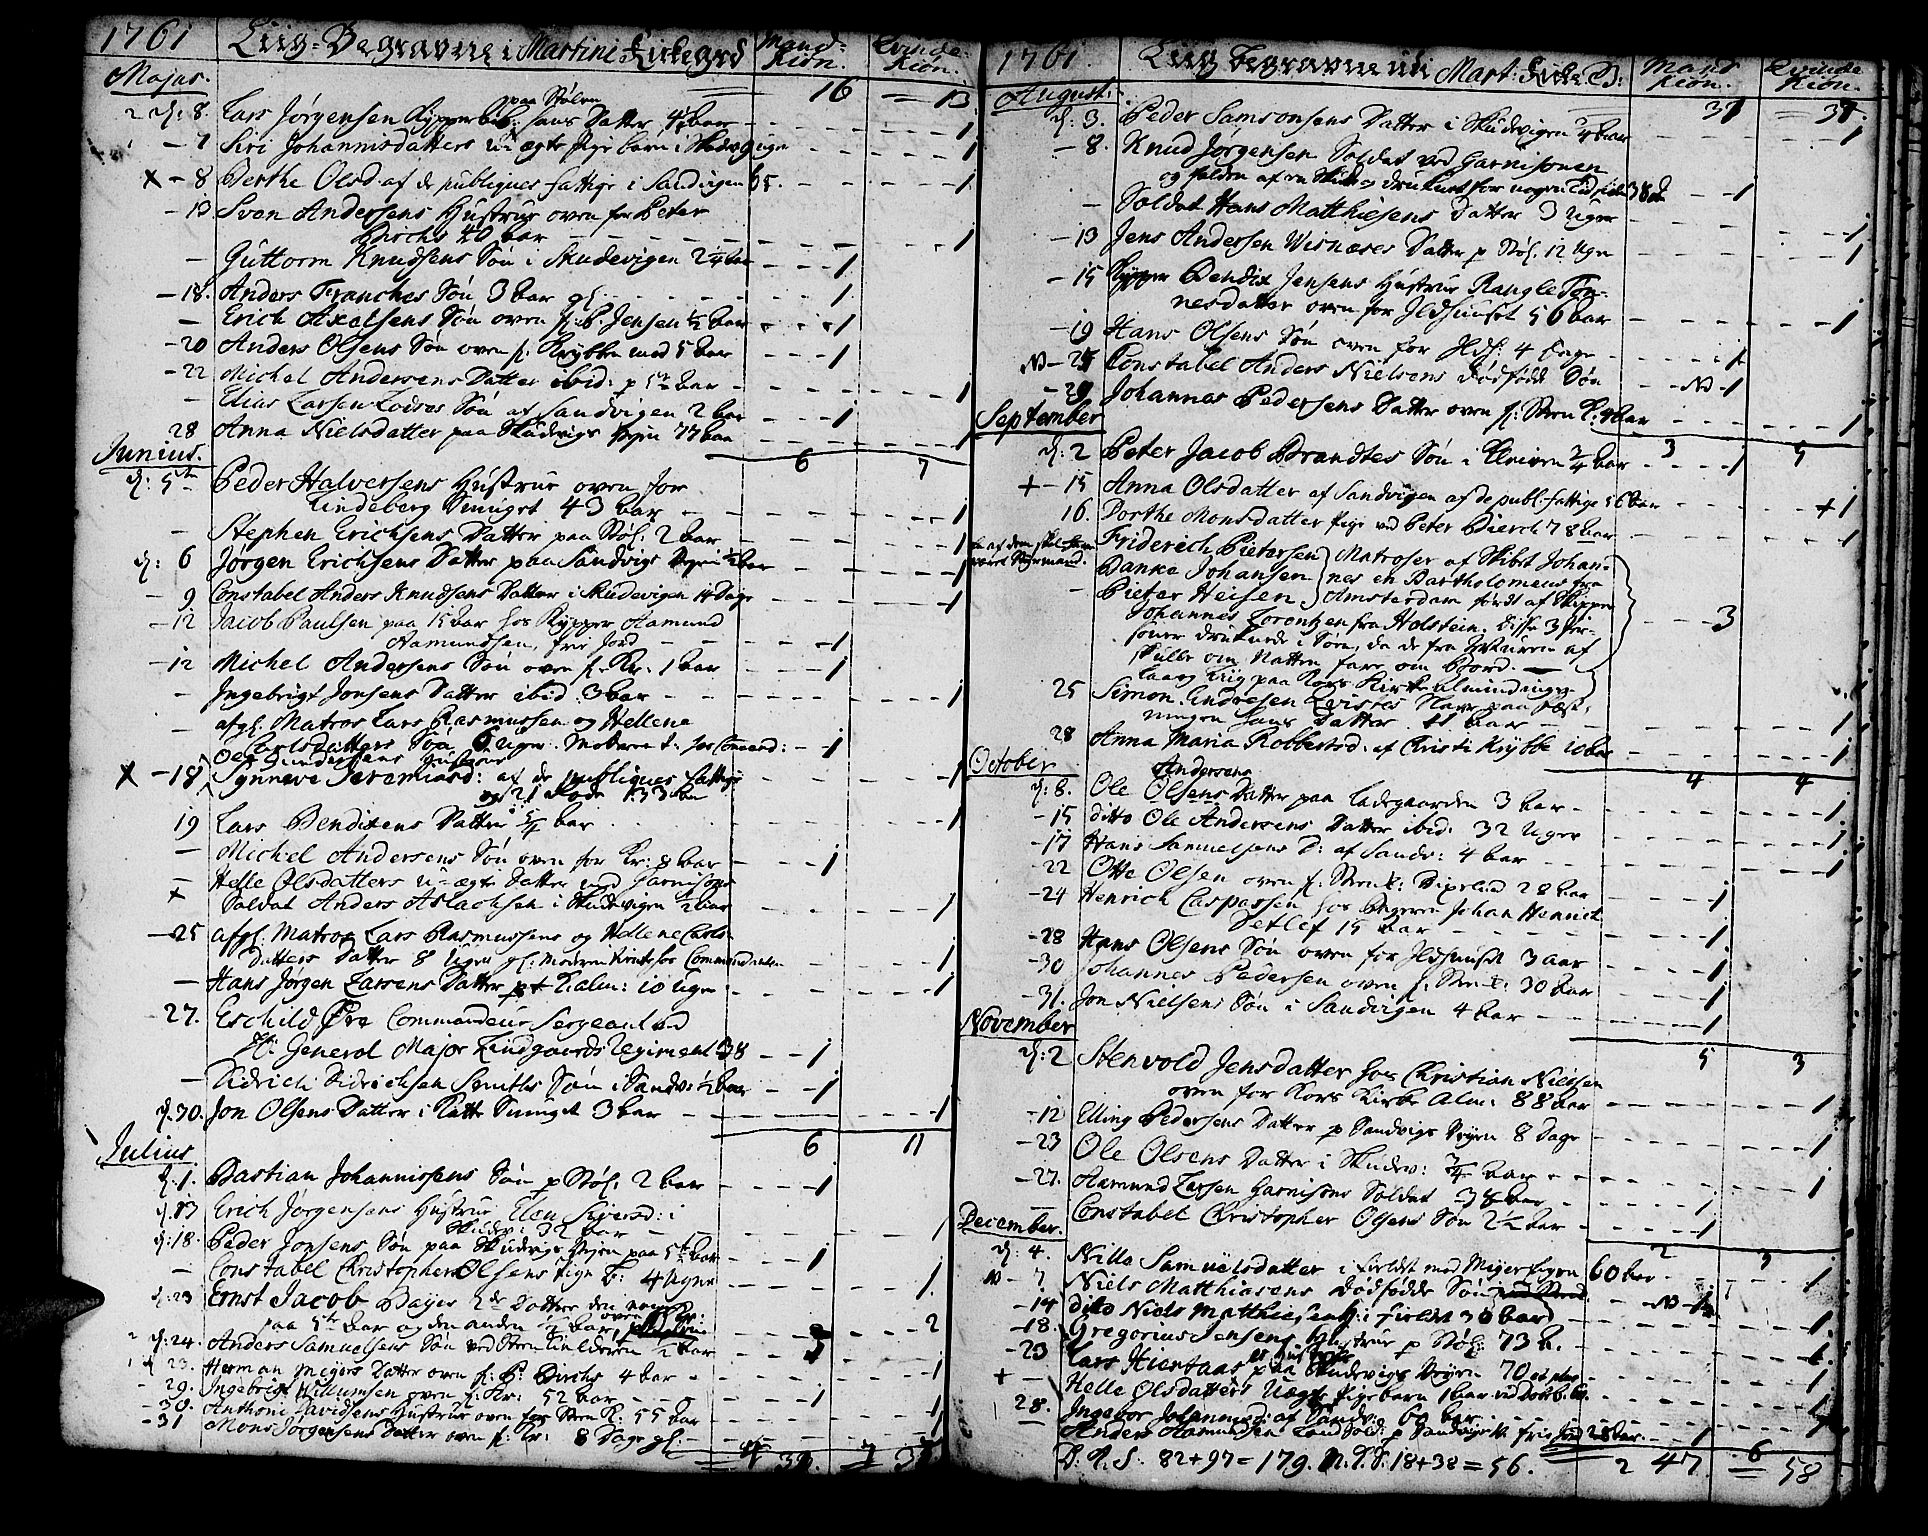 1761 Liig-Begravne i Martini Kirkegrd Mand: Kiøn. Qvinde Kiøn.
Majus. 16 = 13
paa Stølen
d: 8. Lars Jørgensen Kypperbek: hans Datter 4½ aar 1
- 7 Siri Johannisdatters u ægte Pige barn i Skudevigen 1
X - 8 Berthe Olsd. af de publiques fattige i Sandvigen 65. 1
- 13 Sven Andersens Hustrue oven for Peter
Bircks 40 aar 1
- Guttorm Knudsens Søn i Skudevigen 2¼ aar 1
- 18. Anders Franches Søn 3 aar gl. 1
- Erich Axelsens Søn oven f: P. Jensen ½ aar 1
- 20 Anders Olsens Søn oven f: Krybben med 5 aar 1
- 22 Michel Andersens Datter ibid: p 5½ aar 1
- Elias Larsen Lodses Søn af Sandvigen 2 aar 1
28 Anna Nielsdatter paa Skudvigs Vejen 77 aar 1
Junius. 6 7
d: 5te Peder Halversens Hustrue oven for
Lindeberg Smuget 43 aar 1
- Stephen Erichsens Datter paa Støl: 2 aar 1
d: 6 Jørgen Erichsens Datter paa Sandvigs Vejen ½ aar 1
- 9 Constabel Anders Knudsens Datter i Skudevigen 14 Dage 1
- 12 Jacob Paulsen paa 15 aar hos Kypper Aamund
Aamundsen, frie Jord 1
- 12 Michel Andersens Søn oven f. Kr. 1 aar 1
- Ingebrigt Jonsens Datter ibid. 3 aar 1
- afgl. Matros Lars Rasmussen og Hellene
Carlsdatters Søn 6 Uger. Moderen t: hos Comand: 1
Ole Gundersens Hustrue
X - 18 Synneve Jeremiasd: af de publiques fattige
og 21 Rode 133 aar 1
19 Lars Bendixens Datter 5/4 aar 1
- Michel Andersens Søn oven for Kr: 8 aar 1
- Helle Olsdatters u-ægte Datter med Garnisons
X Soldat Anders Aslachsen i Skudevigen ½ aar 1
- 25 afgl. Matros Lars Rasmussens og Hellene Carls-
datters Datter 8 Uger gl: Moderen hos Commandanten 1
- Hans Jørgen Larsens Datter Kalm: 10 Uger 1
27. Eschild Øre Commandeur Sergeant ved
Hr: General Major Lindgaards Regiment 38 1
- Didrich Didrichsen Smiths Søn i Sandv: ½ aar 1
d. 30. Jon Olsens Datter i Katte Smuget 3 aar 1
Julius 6 11
d. 1. Bastian Johannissens Søn p Støl: 2 aar 1
d. 13 Erich Jørgensens Hustrue Elen Siversd: i
Skudv: 32 aar 1
d: 18. Peder Jonsens Søn paa Skudevigs Vejen paa 5te aar 1
- Constabel Christopher Olsens Pige B: 4 Uger 1
d: 23 Ernst Jacob Bayers 2de Døttre den
paa 5te aar og den anden ½ aar 2
d: 24. Anders Samuelsens Søn ved Steen Kielderen ½ aar
23. Herman Meyers Datter oven f: P: Birchs 4 aar 1
29. Ingebrigt Willumsen oven f: Kr: 52 aar 1
- 30. Anthoni Davidsens Hustrue oven for Sten K: 55 aar 1
- 31 Mons Jørgensens Datter oven f: Kr: 8 Dage gl. 1
1761. Liig begravne til Mart: Kirke G: Mands Kiøn. Qvinde Kiøn.
August: 31 = 31
d: 3. Peder Samsonsens Datter i Skudvigen ¾ aar 1
- 8. Knud Jørgensen Soldat ved Garnisonen
og falden af en Skude druknet for nogen tid siden 38 aar 1
- Soldat Hans Matthiesens Datter 3 Uger 1
- 13 Jens Andersen Wisnæses Datter p Støl. 12 Uger 1
- 15 Kypper Bendix Jensens Hustrue Rangle Tøn-
nesdatter oven for Ildhuuset 56 aar 1
- 19 Hans Olsens Søn oven for Ildh: 4 Dage 1
- 25 Constabel Anders Nielsens dødfødde Søn 1
- 29 Johannes Pedersens Datter oven f: Steen K: 9 aar 1
September 3 5
d: 2 Peter Jacob Brandtes Søn i Elveren ¾ aar 1
+ - 15 Anna Olsdatter af Sandvigen af de publ. fattige 56 aar + 1
16. Dorthe Monsdatter Pige ved Peter Bierch 78 aar 1
Friderich Pietersen } Matroser af Skibet Johan-
- Danke Johansen nes en Bartholomeus fra
Pieter Heisen } Amsterdam ført af Skipper
Johannes Lorentzen fra Holstein. Disse 3 Per-
soner druknede i Søen, da de fra
skulle om Natten fare om Bord. 3
laae Liig paa Kors Kirke alminding
25 Simon Endresen Qvistes Slave paa Fæst-
ningen hans Datter 11 aar 1
28 Anna Maria Robbestad: af Christi Krybbe 10 aar 1
October 4 4
Andersens
d: 8. Ole Olsens Datter paa Ladegaarden 3 aar 1
- 15 ditto Ole Andersens Datter ibid: 32 Uger 1
- 17 Hans Samuelsens D: af Sandv: 4 aar 1
- 22 Otte Olsen oven f: Steen K: 28 aar 1
- 24 Henrich Casparsen hos Bageren Johan Henrich
Detlef 15 aar 1
- 28 Hans Olsens Søn oven for Ildhuuset 3 aar 1
- 30 Johannes Pedersen oven f: Sten K: 30 aar 1
- 31. Jon Nielsens Søn i Sandvigen 4 aar 1
November 5 3
d: 2 Stenvold Jensdatter hos Christian Nielsen
oven for Kors Kirke Alm: 88 aar 1
- 12 Elling Pedersens Datter p Sandvigs Vejen 8 Dage 1
- 23 Ole Olsens Datter i Skudev: ¾ aar 1
- 27. Aamund Larsen Garnisons Soldat 38 aar 1
- Constabel Christopher Olsens Søn 2½ aar 1
December. 2 3
d: 4. Nille Samuelsdatter i Fieldet med 60 aar 1
- 7. Niels Matthiasens dødfødde Søn 1
- 14 ditto Niels Matthiesens H: i Fieldet 30 aar 1
- 18. Gregorius Jensens Hustrue p Støl: 73 A. 1
- 23 Lars Hiertaas paa Skudevigs Vejen 70 et plus 1
+ - Helle Olsdatters Uægte Pigebarn 1 aar 1
28. Ingebor Johannisd: af Sandv: 60 aar 1
Anders Aamundsen Landsold: p Sandvigs V. frie Jord 28 aar. 1
D. A. S: 82+97=179. N. D. F: 18+38=56. 2 47 58